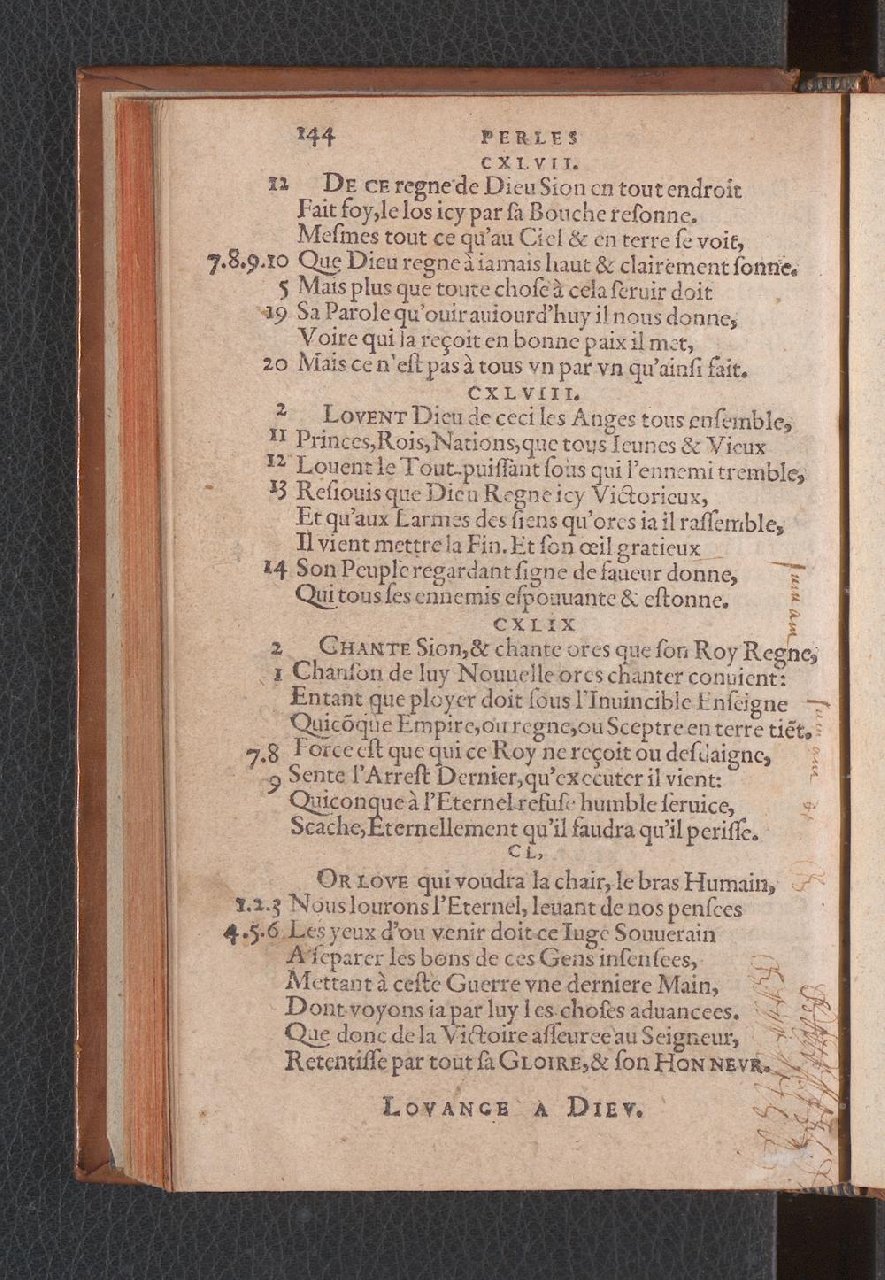 144 PERLES
CXLVII.
12 DE CE regne de Dieu Sion en tout endroit
Fait foy, le los icy par sa Bouche resonne.
Mesmes tout ce qu'au Ciel & en terre se voit,
7.8.9.10 Que Dieu regne à iamais haut & clairement sonne.
5 Mais plus que toute chose à cela seruir doit
19 Sa Parole qu'ouir auiourd'huy il nous donne,
Voire qui la reçoit en bonne paix il met,
20 Mais ce n'est pas à tous vn par vn qu'ainsi fait.
CXLVIII.
2 LOVENT Dieu de ceci les Anges tous ensemble,
11 Princes, Rois, Nations, que tous Ieunes & Vieux
12 Louent le Tout-puissant sous qui l'ennemi tremble,
13 Resiouis que Dieu Regne icy Victorieux,
Et qu'aux Larmes des siens qu'ores ia il rassemble,
Il vient mettre la Fin. Et son œil gratieux
14 Son Peuple regardant signe de faueur donne,
Qui tous ses ennemis espouuante & estonne.
CXLIX
2 CHANTE Sion, & chante ores que son Roy Regne,
1 Chanson de luy Nouuelle ores chanter conuient:
Entant que ployer doit sous l'Inuincible Enseigne
Quicõque Empire, ou regne, ou Sceptre en terre tiẽt.
7.8 Force est que qui ce Roy ne reçoit ou desdaigne,
9 Sente l'Arrest Dernier, qu'executer il vient:
Quiconque à l'Eternel refuse humble seruice,
Scache, Eternellement qu'il faudra qu'il perisse.
CL,
OR LOVE qui voudra la chair, le bras Humain,
1.2.3 Nous lourons l'Eternel, leuant de nos pensees
4.5.6 Les yeux d'ou venir doit ce Iuge Souuerain
A separer les bons de ces Gens insensees,
Mettant à ceste Guerre vne derniere Main,
Dont voyons ia par luy les choses aduancees.
Que donc de la Victoire asseuree au Seigneur,
Retentisse par tout sa GLOIRE, & son HONNEVR.
LOVANGE A DIEV.